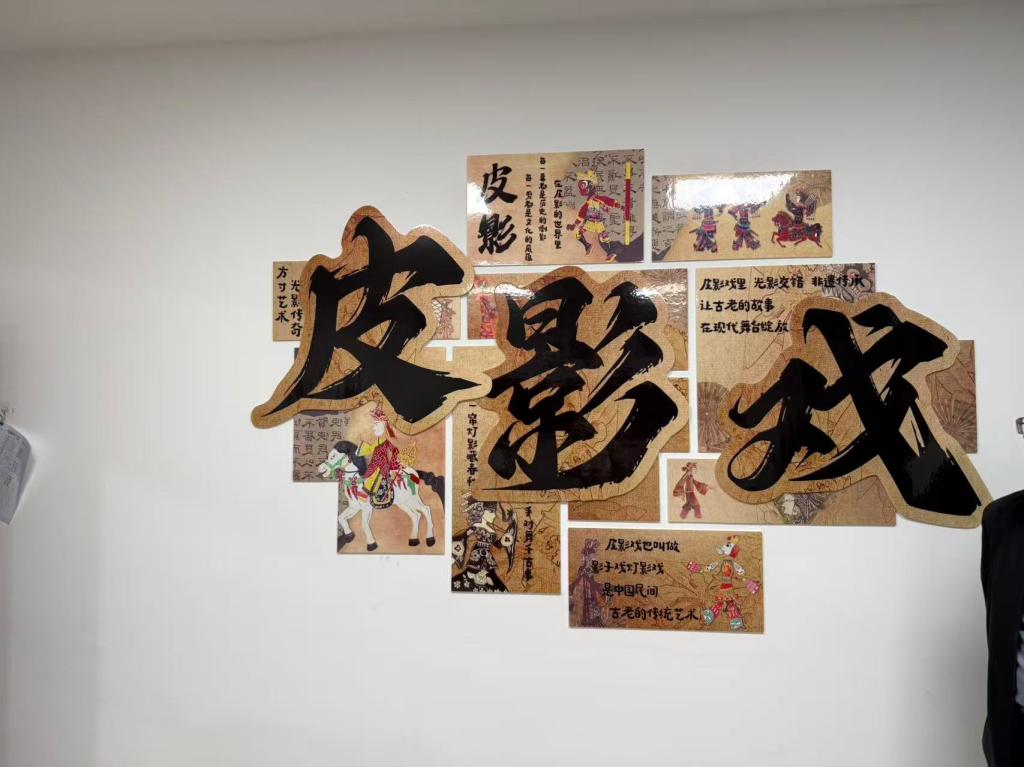 皮影
在皮影的世界里
每一幕都是历史的倒影
每一剪都是文化的痕迹
方寸艺术
光影传奇
皮影戏
皮影戏里 光影交错 非遗传承
让古老的故事
在现代舞台绽放
皮影戏也叫做
影子戏灯影戏
是中国民间
古老的传统艺术